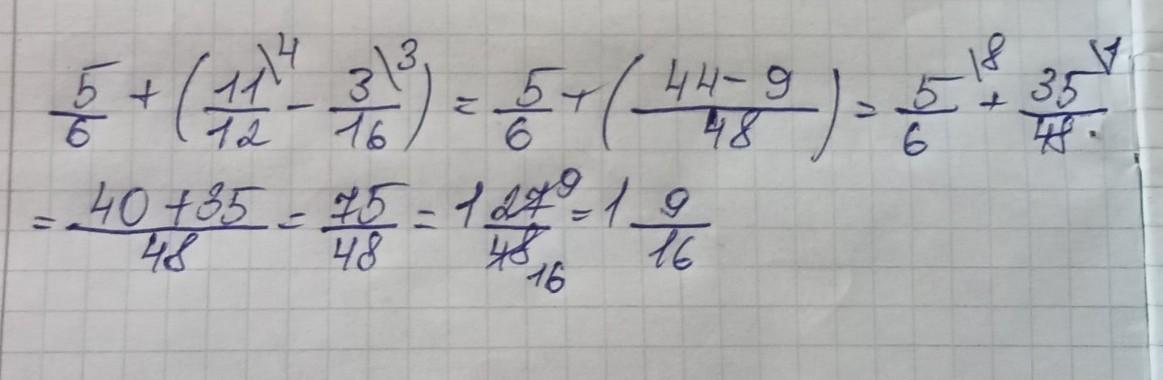 5/6 + (11\4/12 − 3\3/16) = 5/6 + (44 − 9/48) = 5\8/6 + 35\1/48
= 40 + 35/48 = 75/48 = 1 27 9/48 16 = 1 9/16